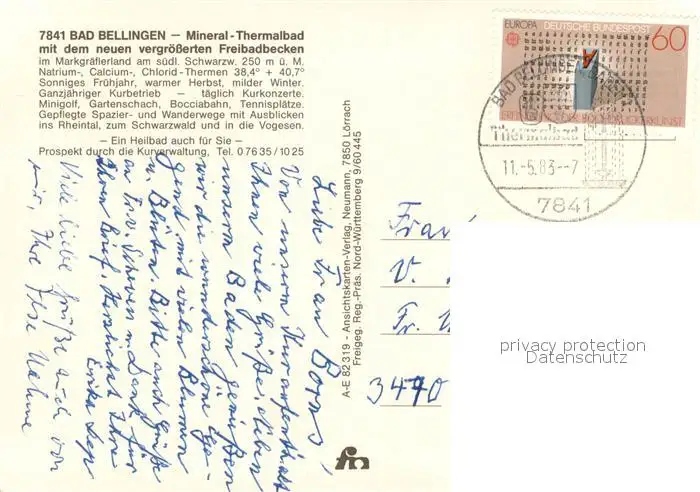 7841 BAD BELLINGEN — Mineral-Thermalbad
mit dem neuen vergrößerten Freibadbecken
im Markgräflerland am südl. Schwarzw. 250 m ü. M.
Natrium-, Calcium-, Chlorid-Thermen 38,4° + 40,7°
Sonniges Frühjahr, warmer Herbst, milder Winter.
Ganzjähriger Kurbetrieb — täglich Kurkonzerte.
Minigolf, Gartenschach, Bocciabahn, Tennisplätze.
Gepflegte Spazier- und Wanderwege mit Ausblicken
ins Rheintal, zum Schwarzwald und in die Vogesen.
— Ein Heilbad auch für Sie —
Prospekt durch die Kurverwaltung, Tel. 0 76 35 / 10 25
Liebe Frau Borns,
Von unserm Kuraufenthalt
Ihnen viele Grüße. Neben
unserm Baden genießen
wir die wunderschöne Ge-
gend mit vielen Blumen
u. Blüten. Bitte auch Grüße
an Frl. u. Dank für
Ihren Brief. Herzlichst Ihre
Erika
Viele liebe Grüße auch von
mir, Ihre Ilse
A-E 82 319 - Ansichtskarten-Verlag, Neumann, 7850 Lörrach
Freigeg. Reg.-Präs. Nord-Württemberg 9/60 445
EUROPA DEUTSCHE BUNDESPOST
60
BAD BELLINGEN
Thermalbad
11.-5.83--7
7841
V.
Fr.
3440
fm
privacy protection
Datenschutz